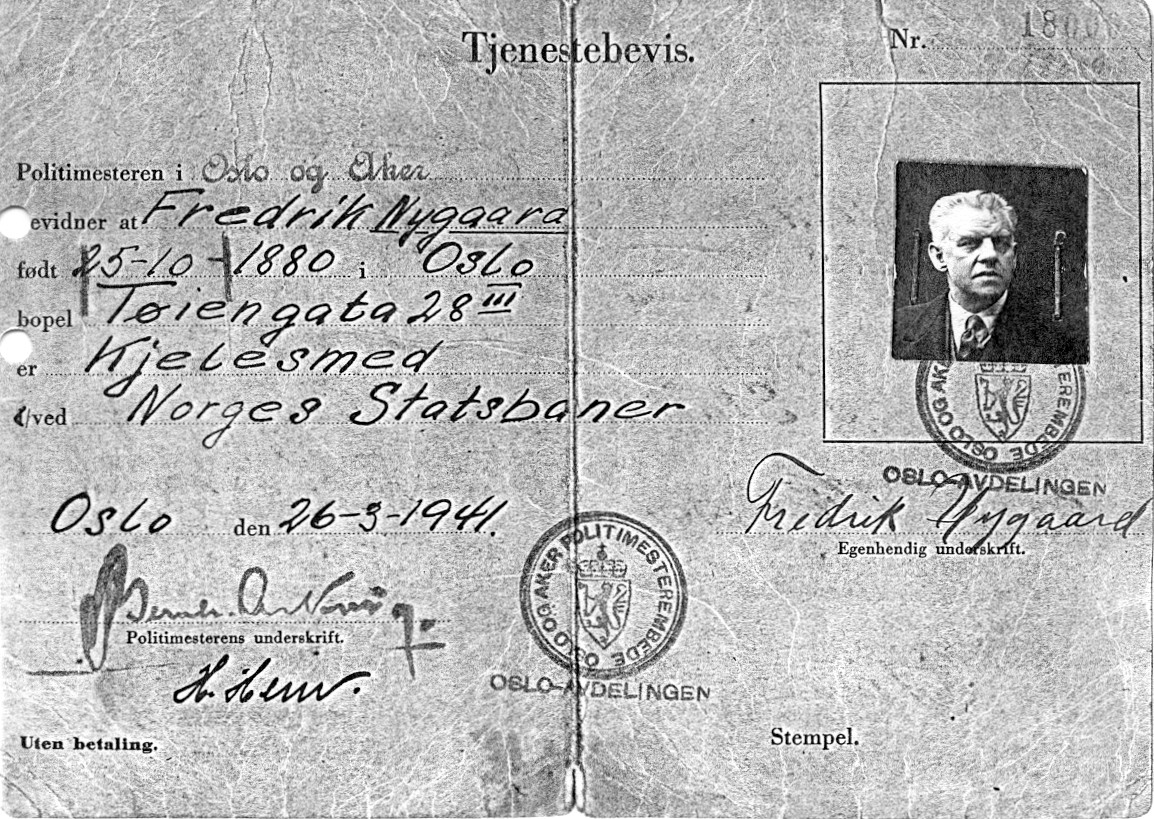 Tjenestebevis.
Nr. 1800
Politimesteren i Oslo og Aker
evidner at Fredrik Nygaard
født 25-10-1880 i Oslo
bopel Tøiengata 28 III
er Kjelesmed
i/ved Norges Statsbaner
OSLO OG AKER POLITIMESTEREMBEDE
OSLO-AVDELINGEN
Fredrik Nygaard
Egenhendig underskrift.
Oslo den 26-3-1941.
OSLO OG AKER POLITIMESTEREMBEDE
OSLO-AVDELINGEN
Politimesterens underskrift.
Uten betaling.
Stempel.